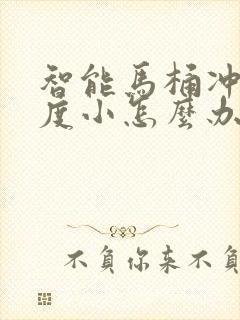 智能馬桶冲
度小怎麼办
不負你来不負